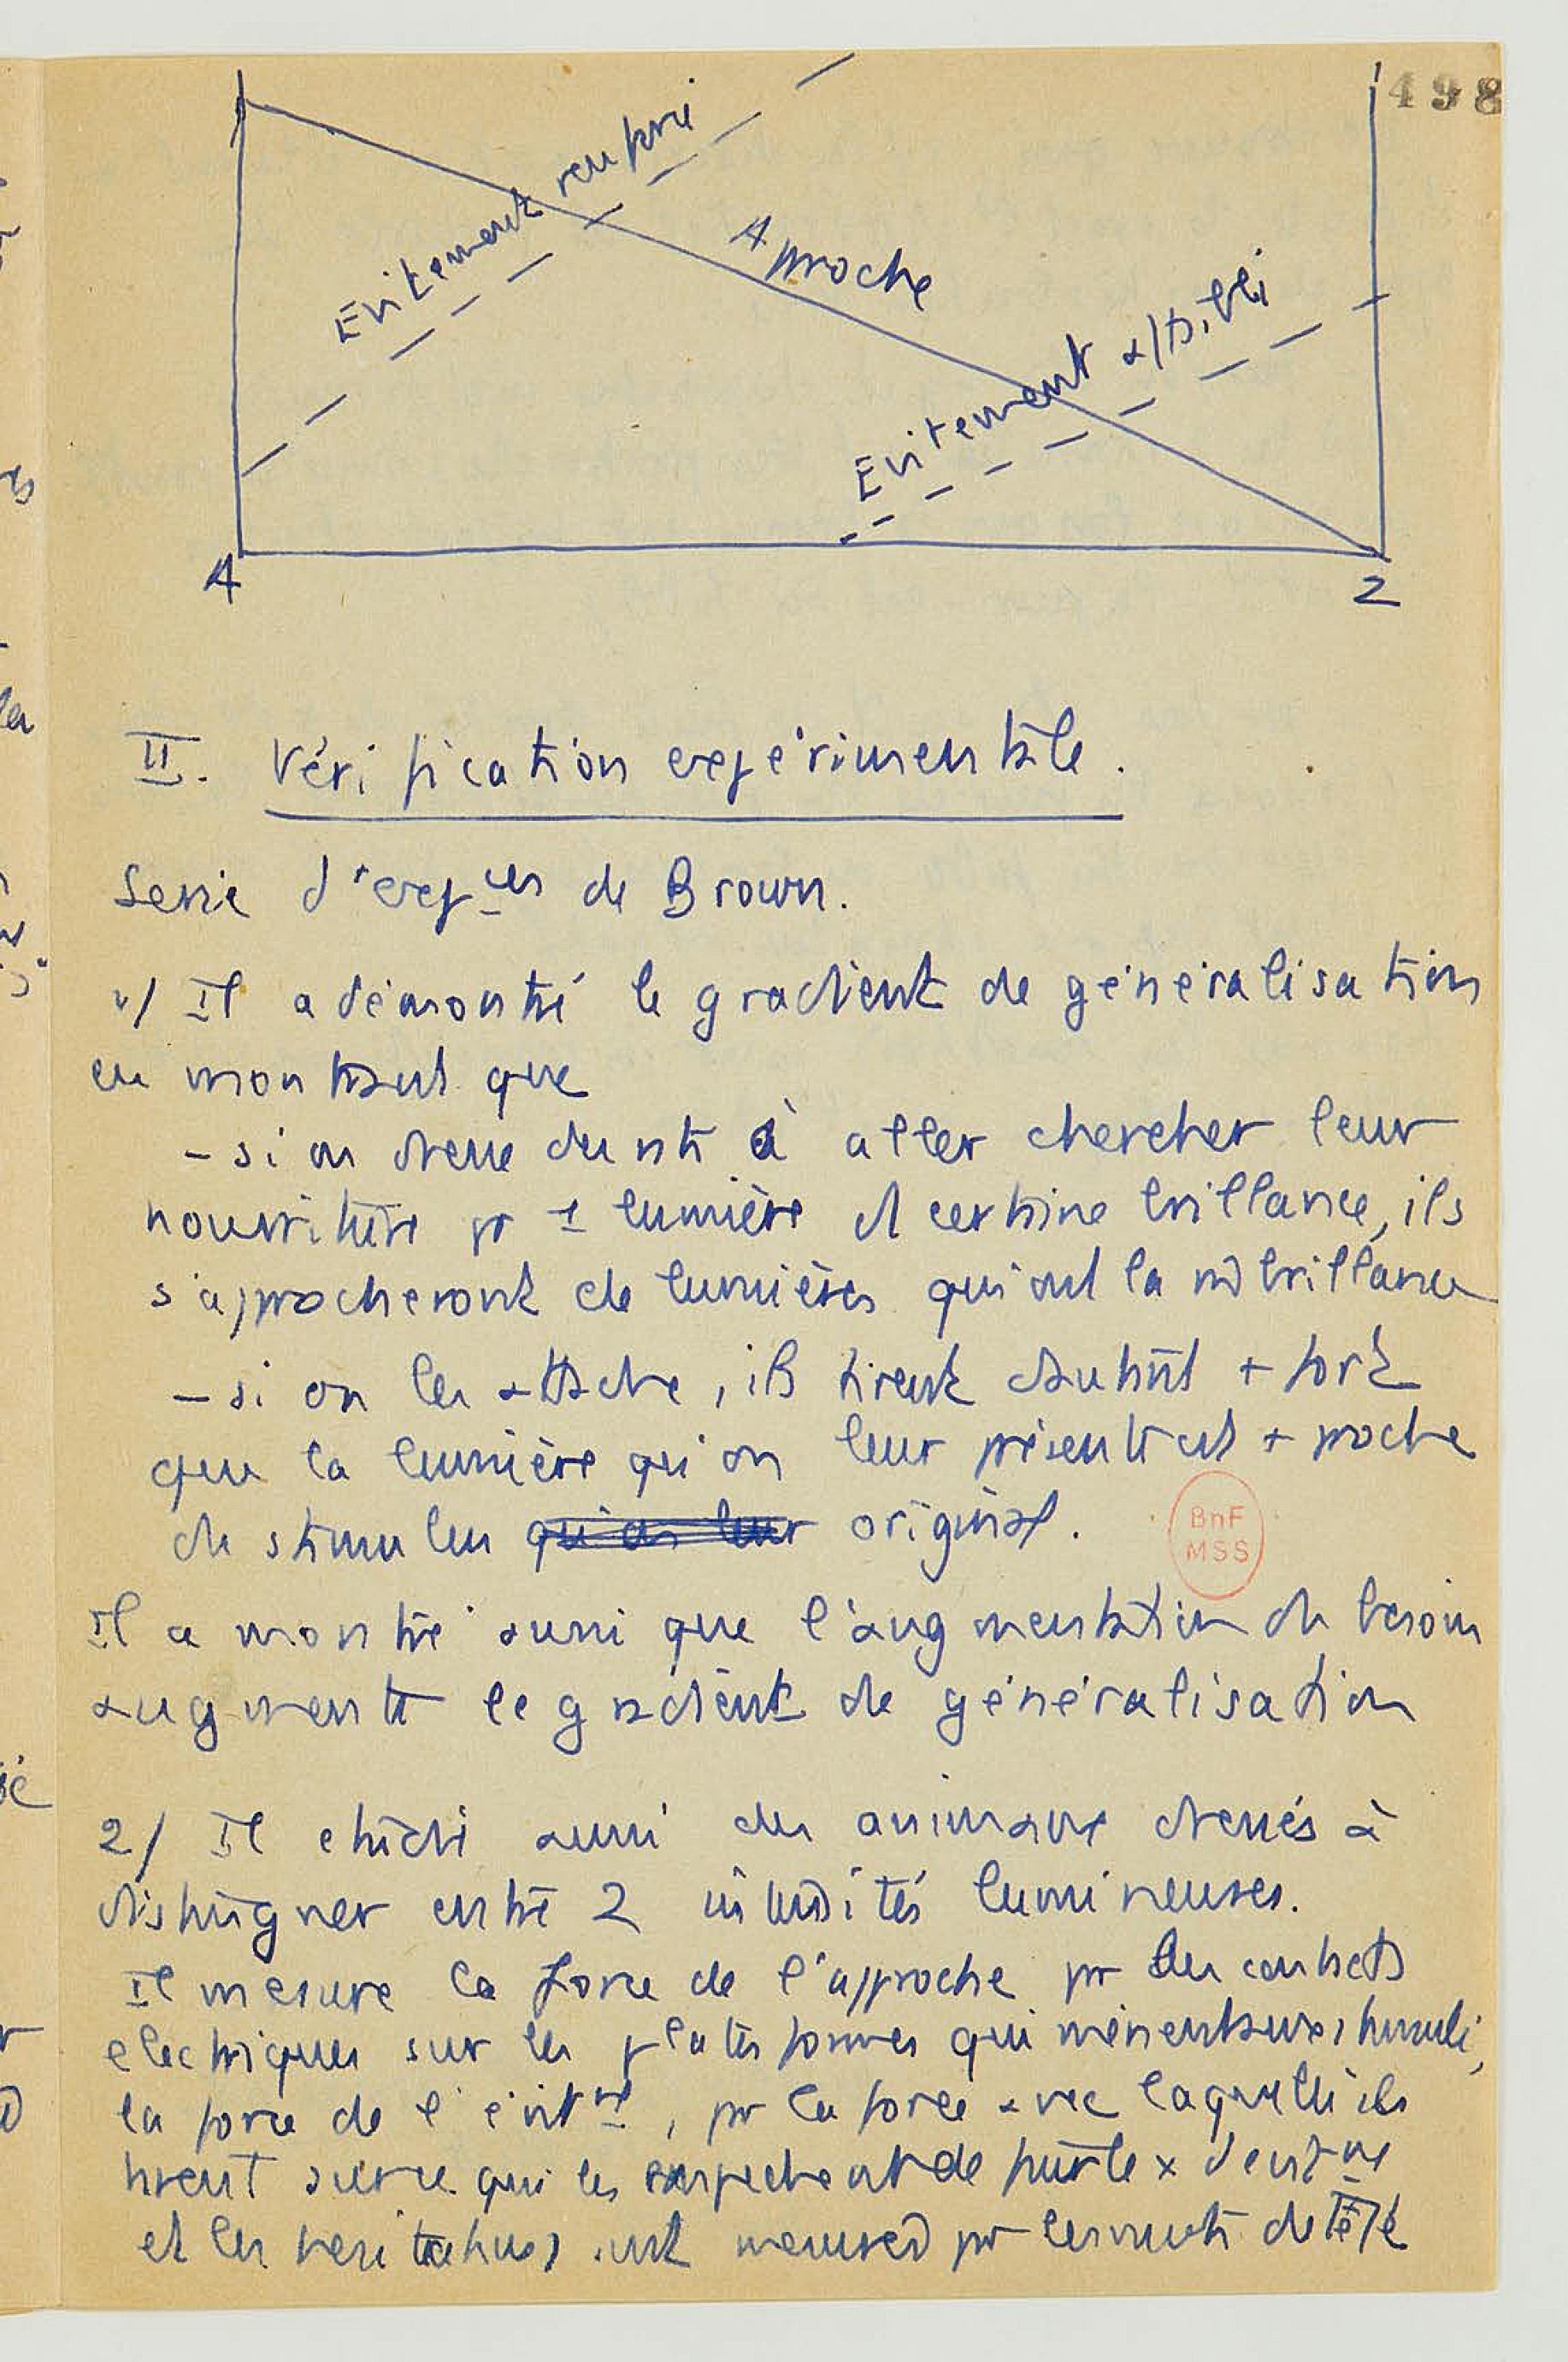 498
Evitement renforcé
Approche
Evitement affaibli
A
Z
II. Vérification expérimentale.
Serie d'expces de Brown.
1/ Il a démontré le gradient de généralisation
en montrant que
- si on dresse des rats à aller chercher leur
nourriture pr 1 lumière d certaine brillance, ils
s'approcheront de lumières qui ont la m̂ brillance
- si on les attache, ils tirent d'autant + fort
que la lumière qu'on leur présente est + proche
du stimulus qu'on leur original.
Il a montré aussi que l'augmentation du besoin
augmente le gradient de généralisation
2/ Il étudie aussi des animaux dressés à
distinguer entre 2 intensités lumineuses.
Il mesure la force de l'approche pr des contacts
electriques sur les plates formes qui mènent aux stimuli,
la force de l'évitmt, pr la force avec laquelle ils
tirent qui les de
et les hesitations sont mesurées pr les mvts de tête
BnF
MSS